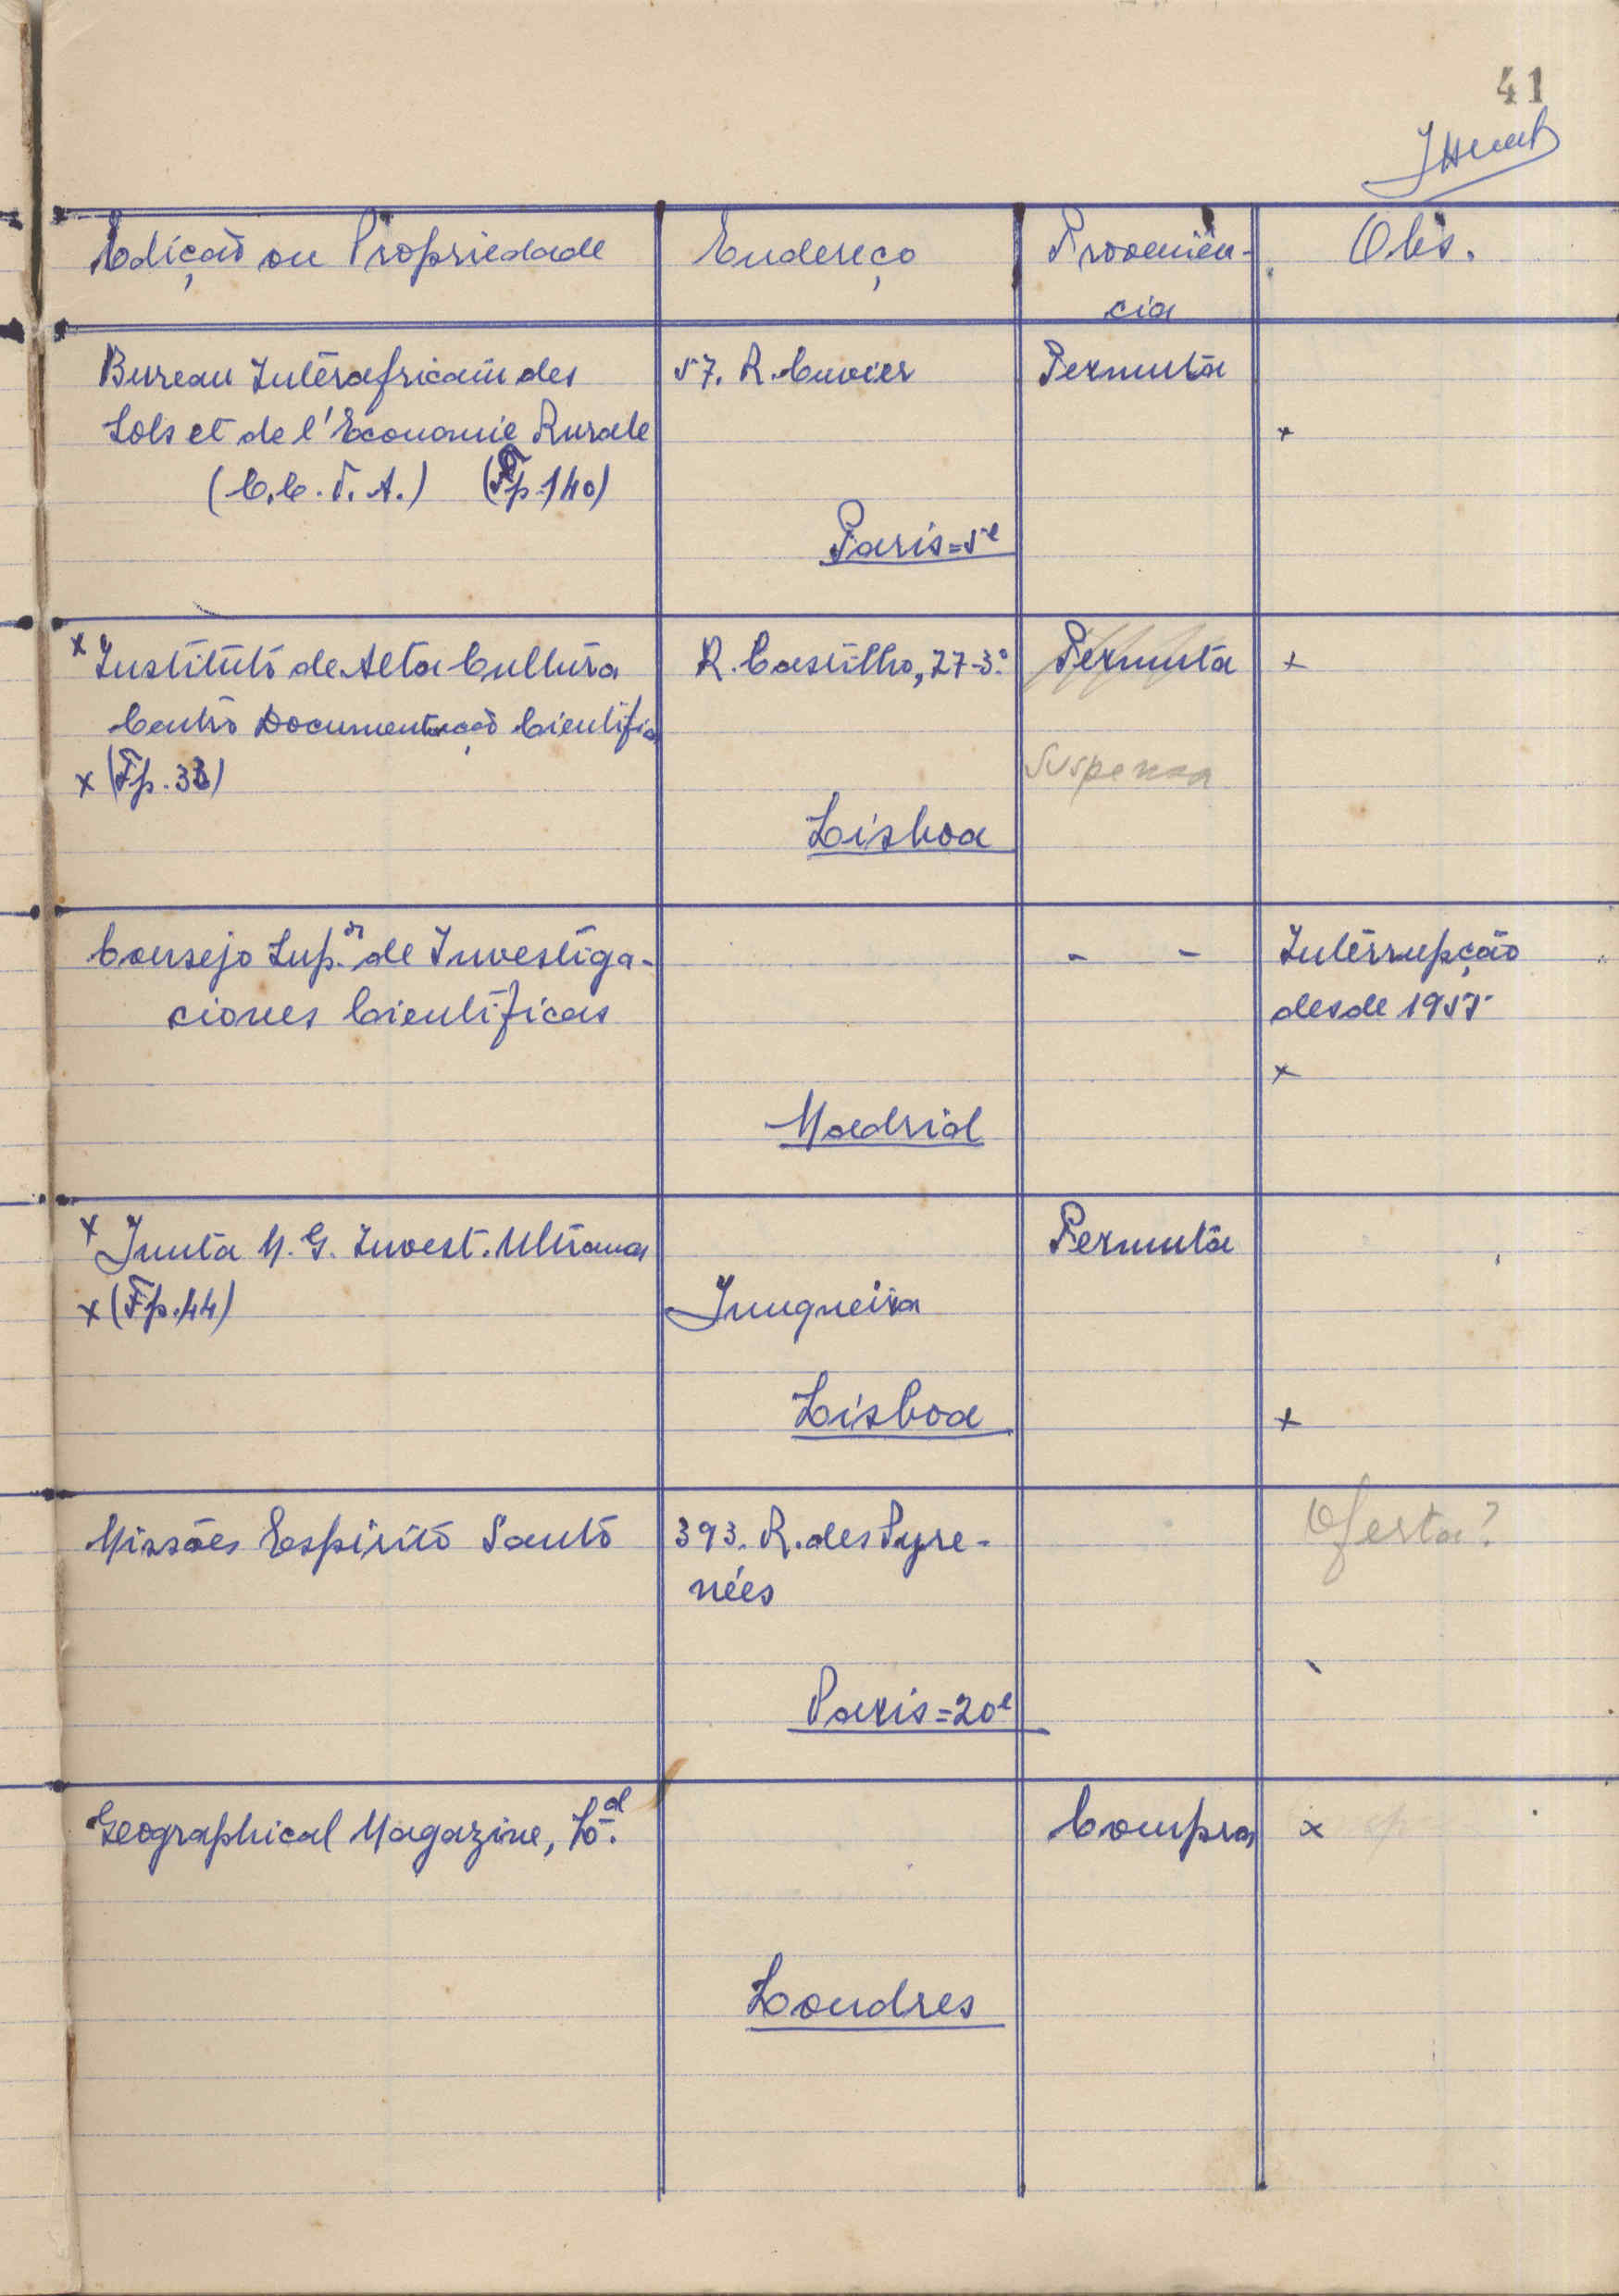 41
Edição ou Propriedade Endereço Proveniên- Obs.
cia
Bureau Interafricain des 57. R. Cuvier Permuta
Sols et de l'Economie Rurale x
(C.C.T.A.) (Fp.140)
Paris=5e
x Instituto de Alta Cultura R. Castilho, 27-3º Permuta x
Centro Documentação Científica
x (Fp. 33) Suspensa
Lisboa
Consejo Sup.or de Investiga- - - Interrupção
ciones Científicas desde 1955
x
Madrid
x Junta M. G. Invest. Ultramar Permuta
x (Fp.44) Junqueira
Lisboa x
Missões Espírito Santo 393. R. des Pyre- Oferta?
nées
Paris=20e
Geographical Magazine, Ltd. Compra x
Londres